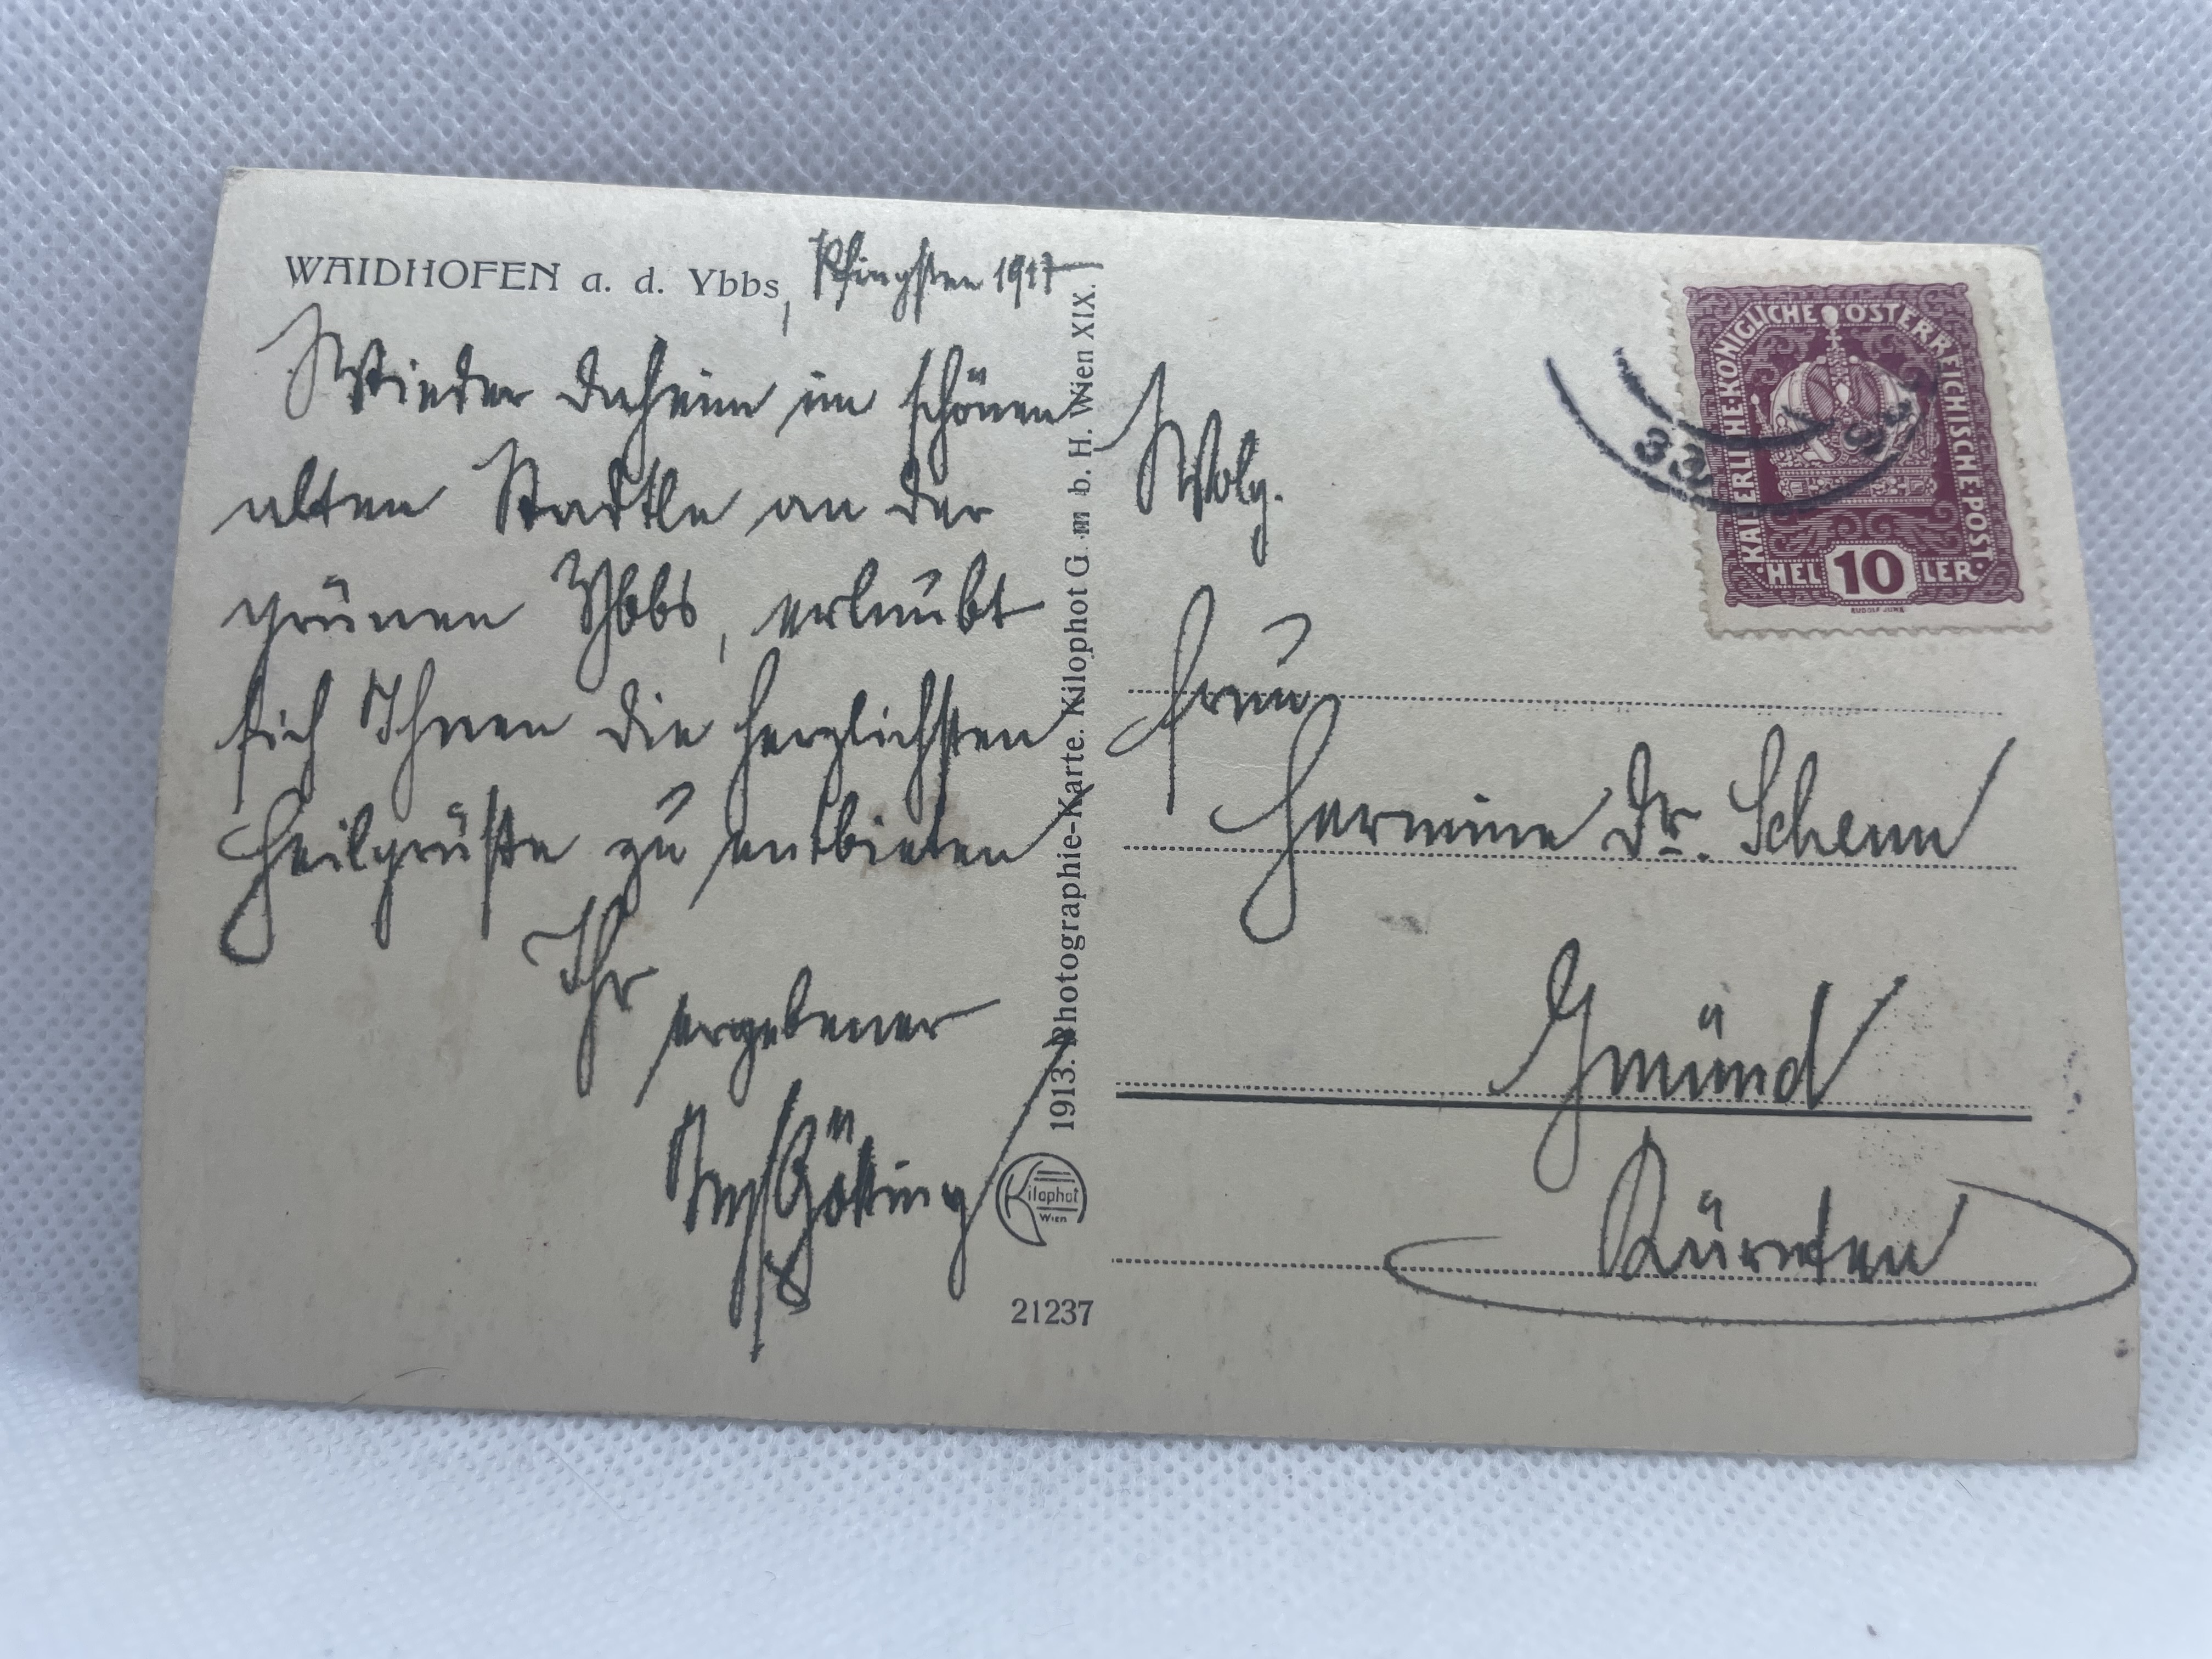 WAIDHOFEN a. d. Ybbs, Pfingsten 1917
Wieder daheim im schönen
alten Stadtle an der
grünen Ybbs, erlaubt
sich Ihnen die herzlichsten
Heilgrüße zu entbieten
Ihr
ergebener
Götting
1913. Photographie-Karte. Kilophot G. m. b. H. Wien XIX.
Kilophot
Wien
21237
KAISERLICHE·KÖNIGLICHE ÖSTERREICHISCHE·POST·
·HEL 10 LER·
RUDOLF JUNK
Wolg.
Frau
Hermine Dr. Schenn
Gmünd
Kärnten